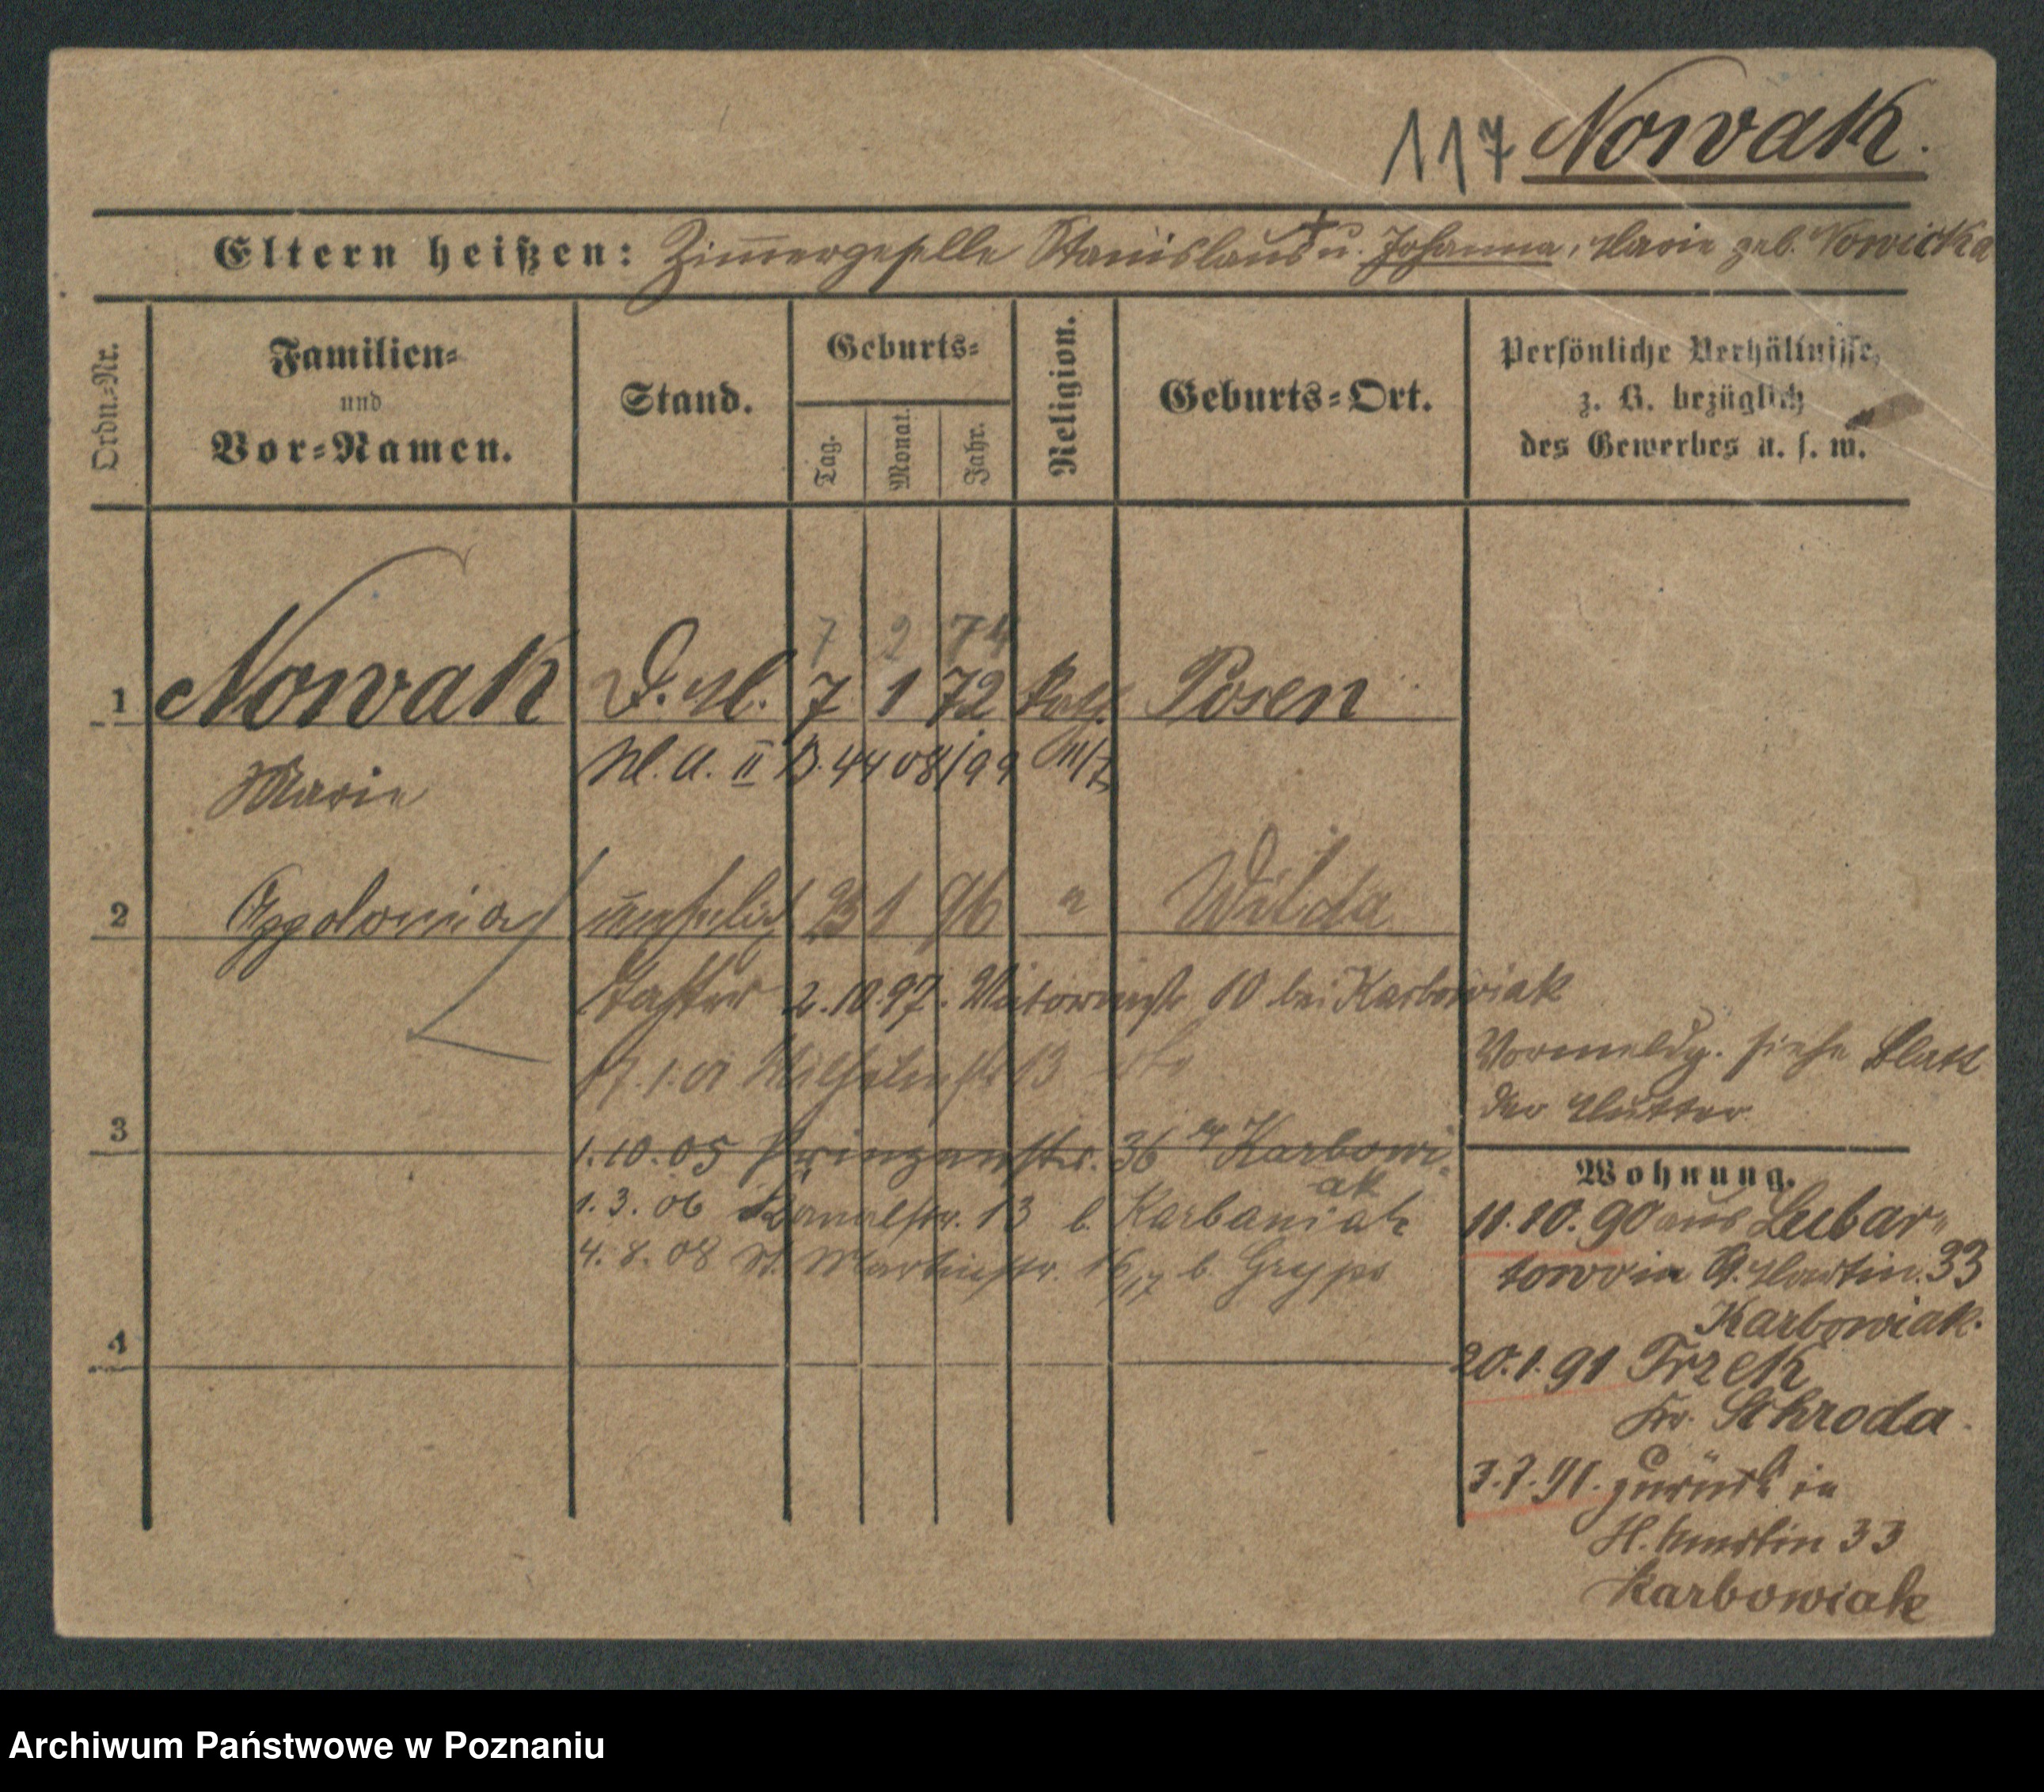 117 Nowak.
Eltern heißen: Zimmergeselle Stanislaus † u. Johanna, Marie geb. Nowicka
Ordn.-Nr.
Familien-
und
Vor-Namen.
Stand.
Geburts-
Tag.
Monat.
Jahr.
Religion.
Geburts-Ort.
Persönliche Verhältnisse,
z. B. bezüglich
des Gewerbes u. s. w.
7 2 74
1 Nowak D. M. 7 1 72 kath. Posen
Marie
M. A. II B. 4408/99
2 Appolonia unehelich 23 1 96 " Wilda
Tochter 2.10.97. 10 bei Karbowiak
17.1.01 Wilhelmstr 13 dto
Vormeldg. siehe Blatt
der Mutter.
3
1.10.05 Prinzenstr. 36 Karbowi-
ak
1.3.06 Kanalstr. 13 b. Karbaniak
4.8.08 St. Martinstr. 16/17 b. Gryps
4
Wohnung.
11.10.90 aus Lubar-
towo in St. Martin. 33
Karbowiak.
20.1.91 Trzek
Kr. Schroda.
3.7.91. zurück in
St. Martin 33
Karbowiak
Archiwum Państwowe w Poznaniu